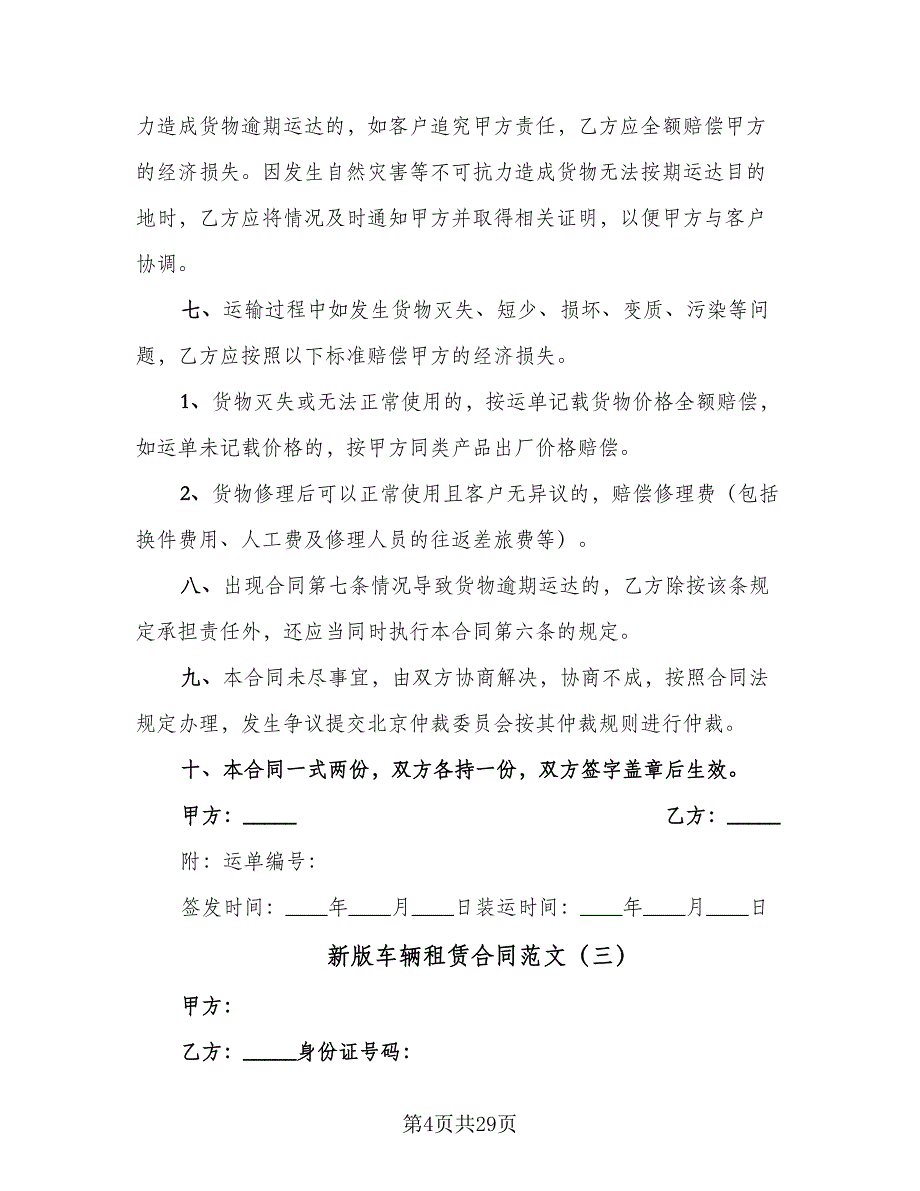 力造成货物逾期运达的，如客户追究甲方责任，乙方应全额赔偿甲方
的经济损失。因发生自然灾害等不可抗力造成货物无法按期运达目的
地时，乙方应将情况及时通知甲方并取得相关证明，以便甲方与客户
协调。
七、运输过程中如发生货物灭失、短少、损坏、变质、污染等问
题，乙方应按照以下标准赔偿甲方的经济损失。
1、货物灭失或无法正常使用的，按运单记载货物价格全额赔偿，
如运单未记载价格的，按甲方同类产品出厂价格赔偿。
2、货物修理后可以正常使用且客户无异议的，赔偿修理费（包括
换件费用、人工费及修理人员的往返差旅费等）。
八、出现合同第七条情况导致货物逾期运达的，乙方除按该条规
定承担责任外，还应当同时执行本合同第六条的规定。
九、本合同未尽事宜，由双方协商解决，协商不成，按照合同法
规定办理，发生争议提交北京仲裁委员会按其仲裁规则进行仲裁。
十、本合同一式两份，双方各持一份，双方签字盖章后生效。
甲方：_____ 乙方：_____
附：运单编号：
签发时间：____年____月____日装运时间：____年____月____日
新版车辆租赁合同范文（三）
甲方：
乙方：_____身份证号码：
第4页共29页